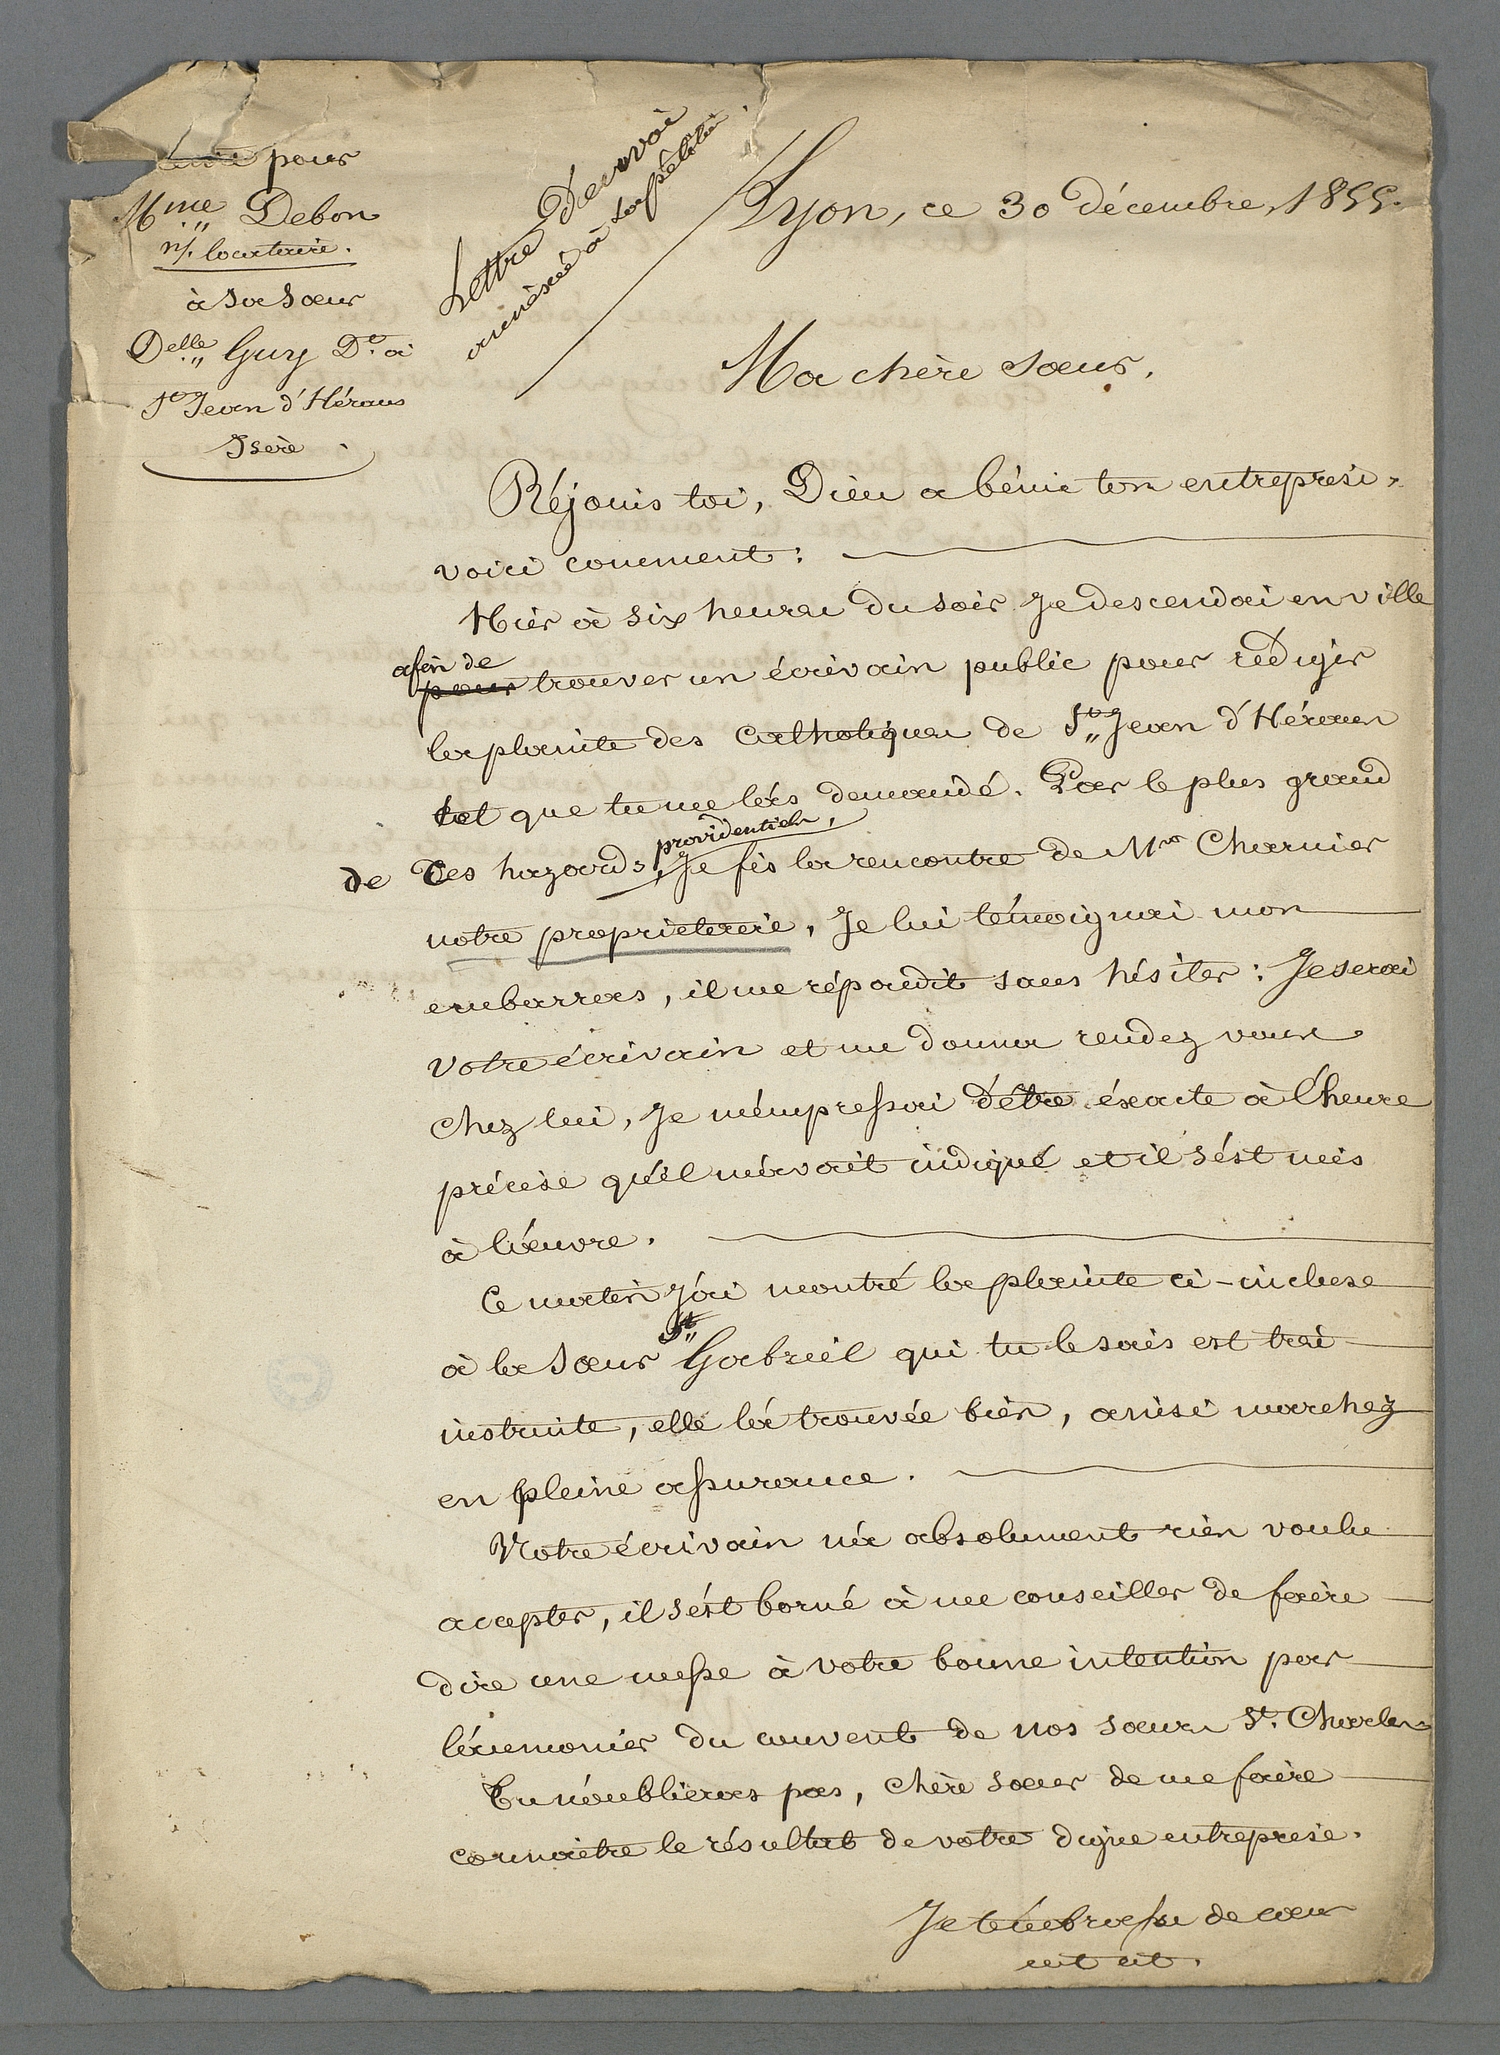 pour
Mme Debon
n/. locataire.
à sa Sœur
Delle Guy Dt. à
St Jean d'Hérans
Isère
Lettre D'envoi
annèxée à la pétition
Lyon, ce 30 décembre, 1855.
Ma chère sœur,
Réjouis toi, Dieu a bénie ton entreprise,
voici comment :
Hier à six heures du soir je descendai en ville
afin de
pour trouver un écrivain public pour rédiger
la plainte des Catholiques de St Jean d'Hérans
tel que tu me l'ás demandé. Par le plus grand
providentiels,
de Ces hazards, Je fis la rencontre de Mr Charnier
notre propriétaire, Je lui témoignai mon
embarras, il me répondit sans hésiter : Je serai
votre écrivain et me donna rendez vous
chez lui, Je m'émpressai d'être éxacte à l'heure
précise qu'il m'avait indiqué et il s'ést mis
à l'œuvre.
Ce matin j'ai montré la plainte ci-incluse
St
à la Sœur Gabriel qui tu le sais est très
instruite, elle l'á trouvée bien, ainsi marchez
en pleine assurance.
Notre écrivain n'á absolument rien voulu
accepter, il s'ést borné à me conseiller de faire
dire une messe à votre bonne intention par
l'áumonier du couvent de nos sœurs St. Charles
Tu n'oublieras pas, chère sœur de me faire
connaitre le résultat de votre digne entreprise.
Je t'émbrasse de cœur